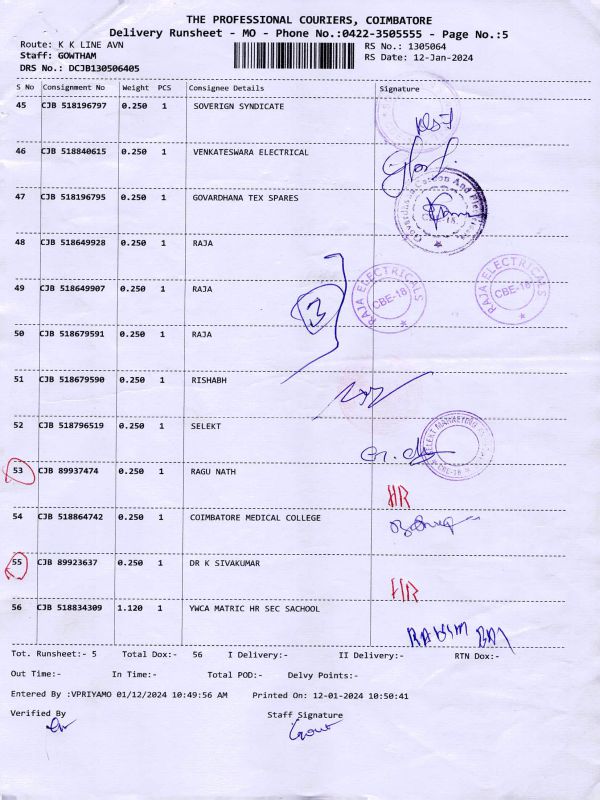 THE PROFESSIONAL COURIERS, COIMBATORE
Delivery Runsheet - MO - Phone No.:0422-3505555 - Page No.:5
Route: K K LINE AVN RS No.: 1305064
Staff: GOWTHAM RS Date: 12-Jan-2024
DRS No.: DCJB130506405
S No Consignment No Weight PCS Consignee Details Signature
45 CJB 518196797 0.250 1 SOVERIGN SYNDICATE
46 CJB 518840615 0.250 1 VENKATESWARA ELECTRICAL
47 CJB 518196795 0.250 1 GOVARDHANA TEX SPARES
48 CJB 518649928 0.250 1 RAJA
RAJA ELECTRICALS CBE-18
RAJA ELECTRICALS CBE-18
49 CJB 518649907 0.250 1 RAJA
3
50 CJB 518679591 0.250 1 RAJA
51 CJB 518679590 0.250 1 RISHABH
52 CJB 518796519 0.250 1 SELEKT
53 CJB 89937474 0.250 1 RAGU NATH
HR
54 CJB 518864742 0.250 1 COIMBATORE MEDICAL COLLEGE
55 CJB 89923637 0.250 1 DR K SIVAKUMAR
HR
56 CJB 518834309 1.120 1 YWCA MATRIC HR SEC SACHOOL
Tot. Runsheet:- 5 Total Dox:- 56 I Delivery:- II Delivery:- RTN Dox:-
Out Time:- In Time:- Total POD:- Delvy Points:-
Entered By :VPRIYAMO 01/12/2024 10:49:56 AM Printed On: 12-01-2024 10:50:41
Verified By Staff Signature